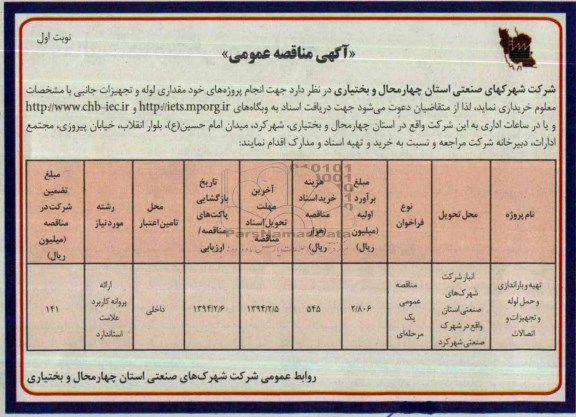 نوبت اول
«آگهی مناقصه عمومی»
شرکت شهرکهای صنعتی استان چهارمحال و بختیاری در نظر دارد جهت انجام پروژه‌های خود مقداری لوله و تجهیزات جانبی با مشخصات
معلوم خریداری نماید، لذا از متقاضیان دعوت می‌شود جهت دریافت اسناد به وبگاه‌های http://iets.mporg.ir و http://www.chb-iec.ir
و یا در ساعات اداری به این شرکت واقع در استان چهارمحال و بختیاری، شهرکرد، میدان امام حسین(ع)، بلوار انقلاب، خیابان پیروزی، مجتمع
ادارات، دبیرخانه شرکت مراجعه و نسبت به خرید و تهیه اسناد و مدارک اقدام نمایند:
نام پروژه
محل تحویل
نوع
فراخوان
مبلغ
برآورد
اولیه
(میلیون
ریال)
هزینه
خرید اسناد
مناقصه
(هزار
ریال)
آخرین
مهلت
تحویل اسناد
مناقصه
تاریخ
بازگشایی
پاکت‌های
مناقصه/
ارزیابی
محل
تامین اعتبار
رشته
مورد نیاز
مبلغ
تضمین
شرکت در
مناقصه
(میلیون
ریال)
تهیه و باراندازی
و حمل لوله
و تجهیزات و
اتصالات
انبار شرکت
شهرک‌های
صنعتی استان
واقع در شهرک
صنعتی شهرکرد
مناقصه
عمومی
یک
مرحله‌ای
۲/۸۰۶
۵۴۵
۱۳۹۴/۲/۵
۱۳۹۴/۲/۶
داخلی
ارائه
پروانه کاربرد
علامت
استاندارد
۱۴۱
ParsNamadData
روابط عمومی شرکت شهرک‌های صنعتی استان چهارمحال و بختیاری